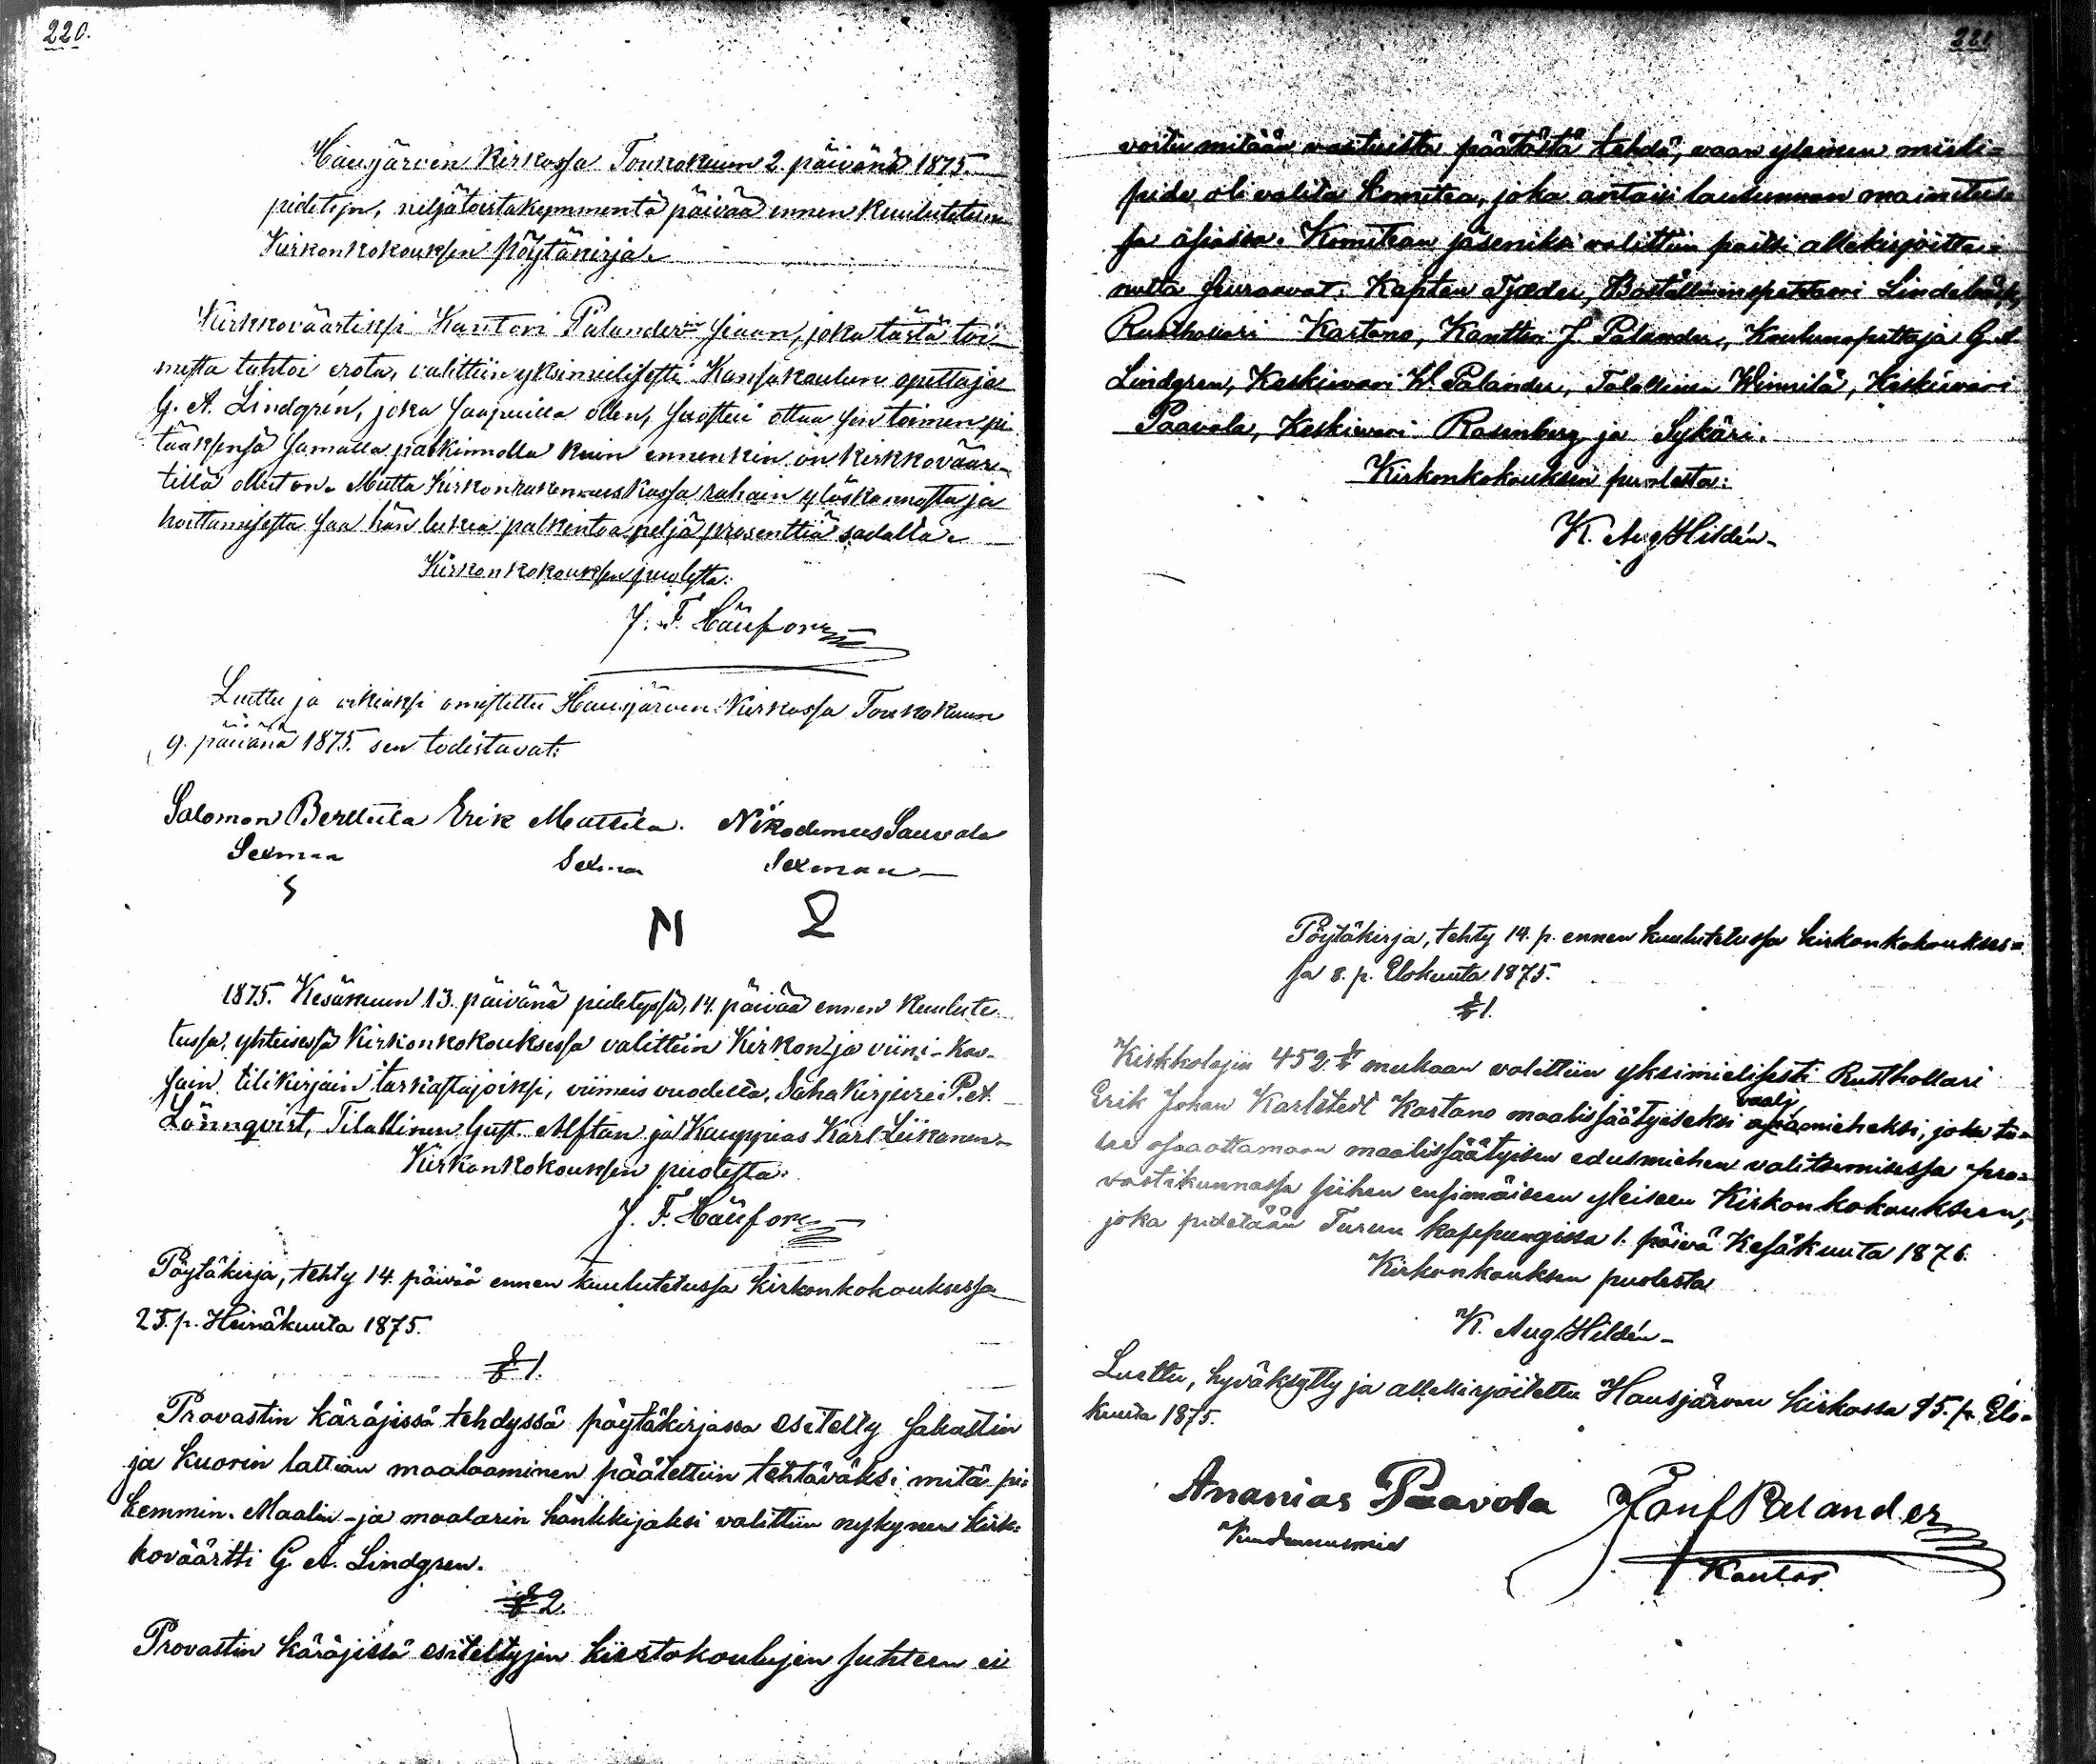 220.
Hausjärven Kirkossa Toukokuun 2. päivänä 1875.
pidetyn, neljätoistakymmentä päivää ennen kuulutetun
Kirkonkokouksen Pöytäkirja.
Kirkkoväärtiksi Kanttori Palander siaan, joka tästä toi-
mesta tahtoi erota, valittiin yksimielisesti Kansakoulun opettaja
G. A. Lindgrén, joka saapuilla ollen, suostui ottaa sen toimen pi
tääksensä samalla palkinnolla kuin ennenkin on kirkkoväär-
tillä ollut on. Mutta Kirkonrakennus Kassa rahain ylöskannosta ja
hoittamisesta saa hän lukea palkintoa neljä prosenttia sadalta.
Kirkonkokouksen puolesta:
J. F. Häufors
Luettu ja oikiaksi omistettu Hausjärven Kirkossa Toukokuun
9. päivänä 1875. sen todistavat:
Salomon Berttula Erik Mattila. Nikodemus Sauvala
Sexman Sexman Sexman
M
1875. Kesäkuun 13. päivänä pidetyssä, 14. päivää ennen kuulute
tussa, yhteisessä Kirkonkokouksessa valittiin Kirkon ja viini-Kas-
sain tilikirjain tarkastajoiksi, viimeis vuodelta, Saha Kirjuri P. A.
Lönnqvist, Tilallinen Gust. Alftan ja Kauppias Karl Liikanen
Kirkonkokouksen puolesta:
J. F. Häufors
Pöytäkirja, tehty 14. päivää ennen kuulutetussa kirkonkokouksessa
25. p. Heinäkuuta 1875.
§ 1.
Provastin käräjissä tehdyssä pöytäkirjassa esitelty sakastin
ja Kuorin lattian maalaaminen päätettiin tehtäväksi mitä pi-
kemmin. Maalin- ja maalarin hankkijaksi valittiin nykynen kirk-
koväärtti G. A. Lindgren.
§ 2.
Provastin käräjissä esiteltyjen kiertokoulujen suhteen ei
221
voitu mitään vastuista päätöstä tehdä, vaan yleinen mieli-
pide oli valita komitea, joka antaisi lausunnon mainitus-
sa asiassa. Komitean jäseniksi valittiin paitsi allekirjoitta-
nutta seuraavat: Kapten Tjæder, Boställiinspehtoori Lindebäck,
Rusthollari Kartano, Kanttori J. Palander, Koulunopettaja G. A.
Lindgren, Keskievari W. Palander, Talollinen Winnilä, Keskievari
Paavola, Keskievari Rosenberg ja Sykäri.
Kirkonkokouksen puolesta:
K. Aug Hildén
Pöytäkirja, tehty 14. p. ennen kuulutetussa kirkonkokoukses-
sa 8. p. Elokuuta 1875.
§ 1.
Kirkkolajin 452 § mukaan valittiin yksimielisesti Rusthollari
Erik Johan Karlstedt Kartano maalissäätyiseksi vaali
miheksi, joka tu-
lee osaaottamaan maalissäätyisen edusmiehen valitsemisessa pro-
vastikunnassa siihen ensimäiseen yleiseen Kirkonkokouksen,
joka pidetään Turun kappungissa 1. päivä Kesäkuuta 1876.
Kirkonkouksen puolesta
K. Aug Hildén
Luettu, hyväksytty ja allekirjoitettu Hausjärven kirkossa 15. p. Elo-
kuuta 1875.
Ananias Paavola
Kantor